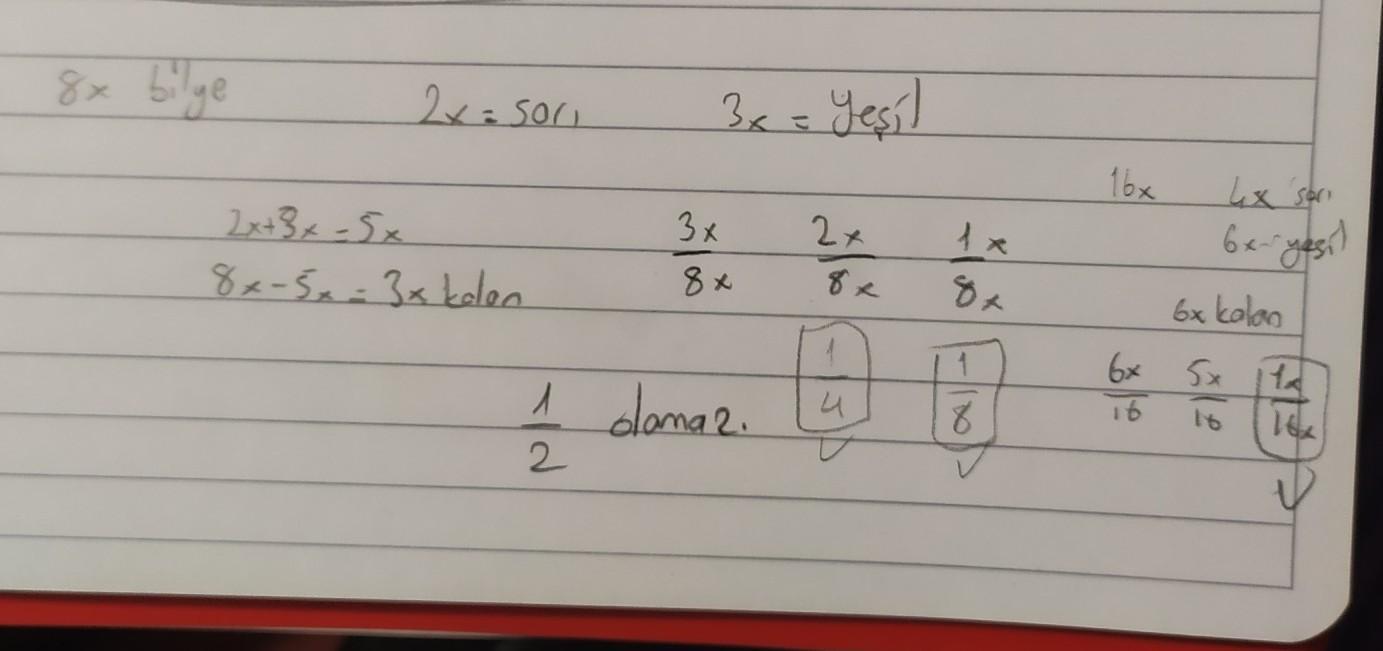 8x bilye 2x = sarı 3x = Yeşil
16x 4x sarı
2x+3x = 5x 3x/8x 2x/8x 1x/8x 6x- yeşil
8x - 5x = 3x kalan 6x kalan
1/2 olamaz. 1/4 1/8 6x/16 5x/16 1x/16x